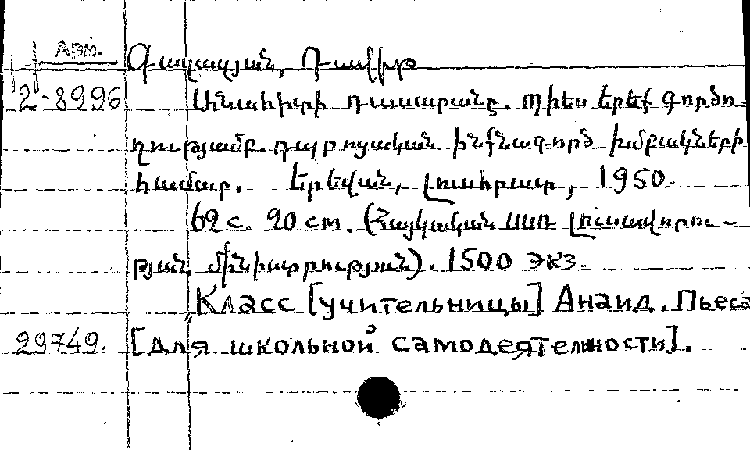 Арм. Գազազյան, Դավիթ
2-8996 Անահիտի դասարանը. Պիես երեք գործո-
ղությամբ. դպրոցական ինքնագործ խմբակների
համար. Երեվան, Լուսհրատ, 1950.
62 с. 20 cm. (Հայկական ՍՍՌ Լուսավորու-
թյան մինիստրություն). 1500 экз.
Класс [учительницы] Анаид. Пьеса
29749. [для школьной самодеятелности].